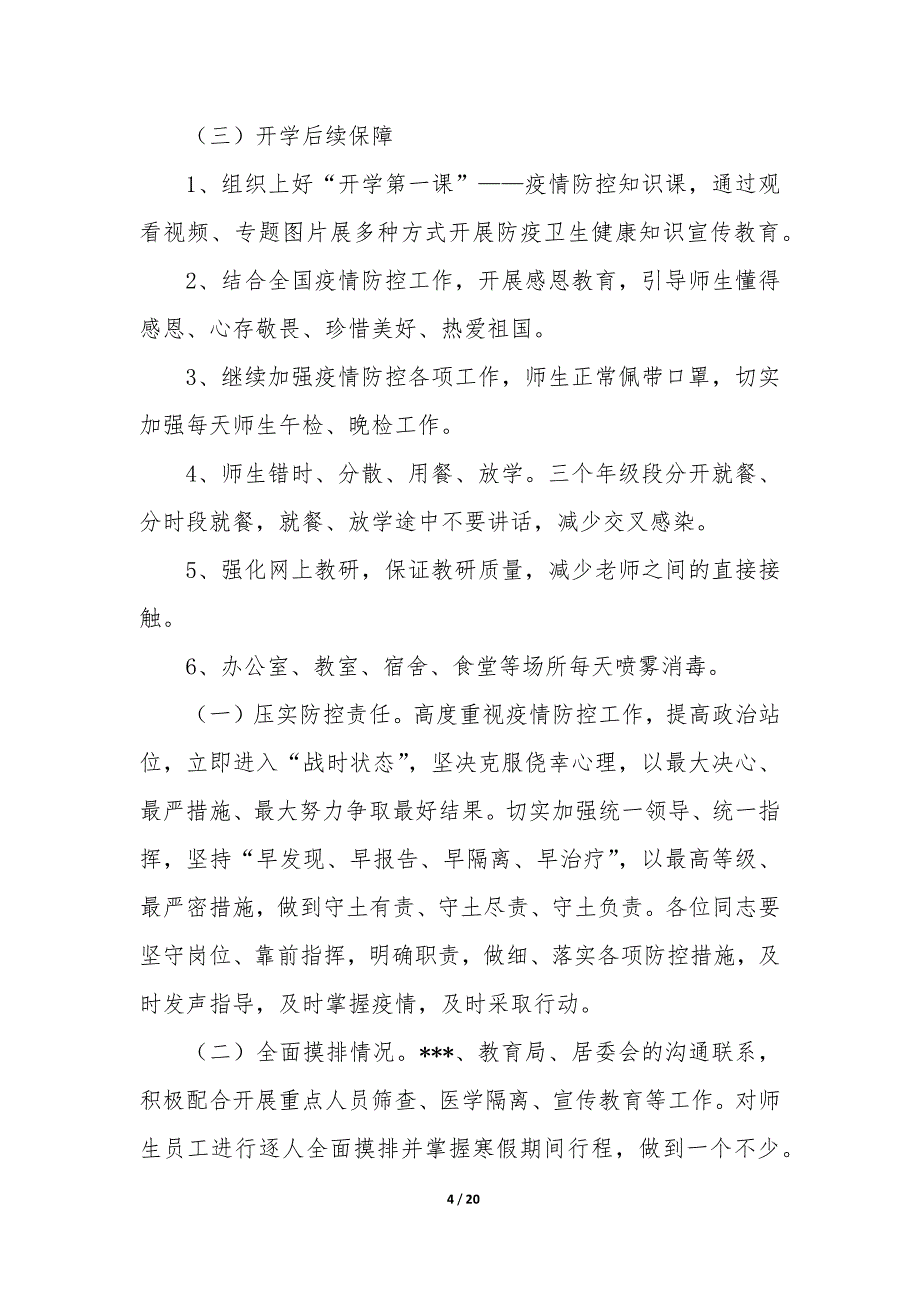 （三）开学后续保障
1、组织上好“开学第一课”——疫情防控知识课，通过观
看视频、专题图片展多种方式开展防疫卫生健康知识宣传教育。
2、结合全国疫情防控工作，开展感恩教育，引导师生懂得
感恩、心存敬畏、珍惜美好、热爱祖国。
3、继续加强疫情防控各项工作，师生正常佩带口罩，切实
加强每天师生午检、晚检工作。
4、师生错时、分散、用餐、放学。三个年级段分开就餐、
分时段就餐，就餐、放学途中不要讲话，减少交叉感染。
5、强化网上教研，保证教研质量，减少老师之间的直接接
触。
6、办公室、教室、宿舍、食堂等场所每天喷雾消毒。
（一）压实防控责任。高度重视疫情防控工作，提高政治站
位，立即进入“战时状态”，坚决克服侥幸心理，以最大决心、
最严措施、最大努力争取最好结果。切实加强统一领导、统一指
挥，坚持“早发现、早报告、早隔离、早治疗”，以最高等级、
最严密措施，做到守土有责、守土尽责、守土负责。各位同志要
坚守岗位、靠前指挥，明确职责，做细、落实各项防控措施，及
时发声指导，及时掌握疫情，及时采取行动。
（二）全面摸排情况。***、教育局、居委会的沟通联系，
积极配合开展重点人员筛查、医学隔离、宣传教育等工作。对师
生员工进行逐人全面摸排并掌握寒假期间行程，做到一个不少。
4 / 20